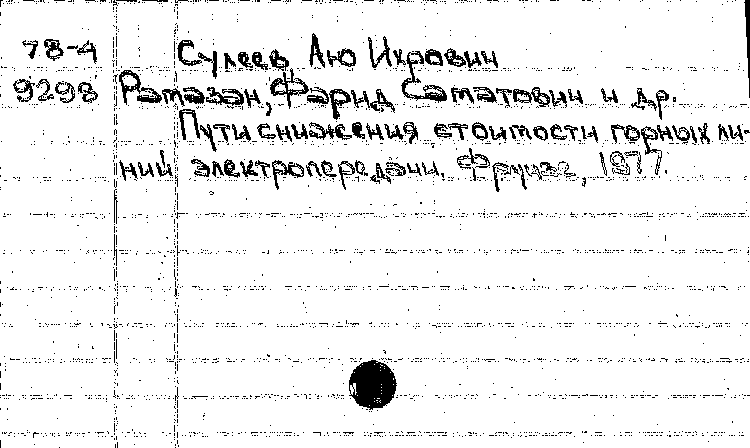 78-4 Сулеев Аю Икрович
9298 Рамазан, Фарид Саматович и др.
Пути снижения стоимости горных ли-
ний электропередачи. Фрунзе, 1977.